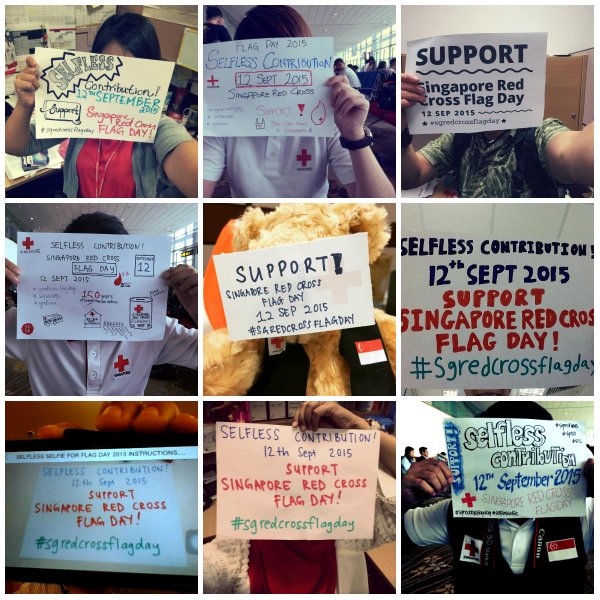 SELFLESS
Contribution!
12th SEPTEMBER
2015
Support
Singapore
Red Cross
FLAG DAY!
#sgredcrossflagday
FLAG DAY 2015
SELFLESS CONTRIBUTION
12 SEPT 2015
SINGAPORE RED CROSS
SUPPORT!
YOU CAN MAKE
SUPPORT
Singapore Red
Cross Flag Day
12 SEP 2015
#sgredcrossflagday
SELFLESS CONTRIBUTION!
SINGAPORE RED CROSS
FLAG DAY
12 SEPT 2015
SEPTEMBER
12
#sgredcrossflagday
150 years
SINGAPORE
SUPPORT!
SINGAPORE RED CROSS
FLAG DAY
12 SEP 2015
#SGREDCROSSFLAGDAY
SELFLESS CONTRIBUTION!
12th SEPT 2015
SUPPORT
SINGAPORE RED CROSS
FLAG DAY!
#sgredcrossflagday
SELFLESS SELFIE FOR FLAG DAY 2015 INSTRUCTIONS....
SELFLESS CONTRIBUTION!
12th Sept 2015
SUPPORT
SINGAPORE RED CROSS
FLAG DAY!
#sgredcrossflagday
SELFLESS CONTRIBUTION!
12th Sept 2015
SUPPORT
SINGAPORE RED CROSS
FLAG DAY!
#sgredcrossflagday
SUPPORT!
selfless
contribution
12th September 2015
SINGAPORE RED CROSS
FLAG DAY
Canon